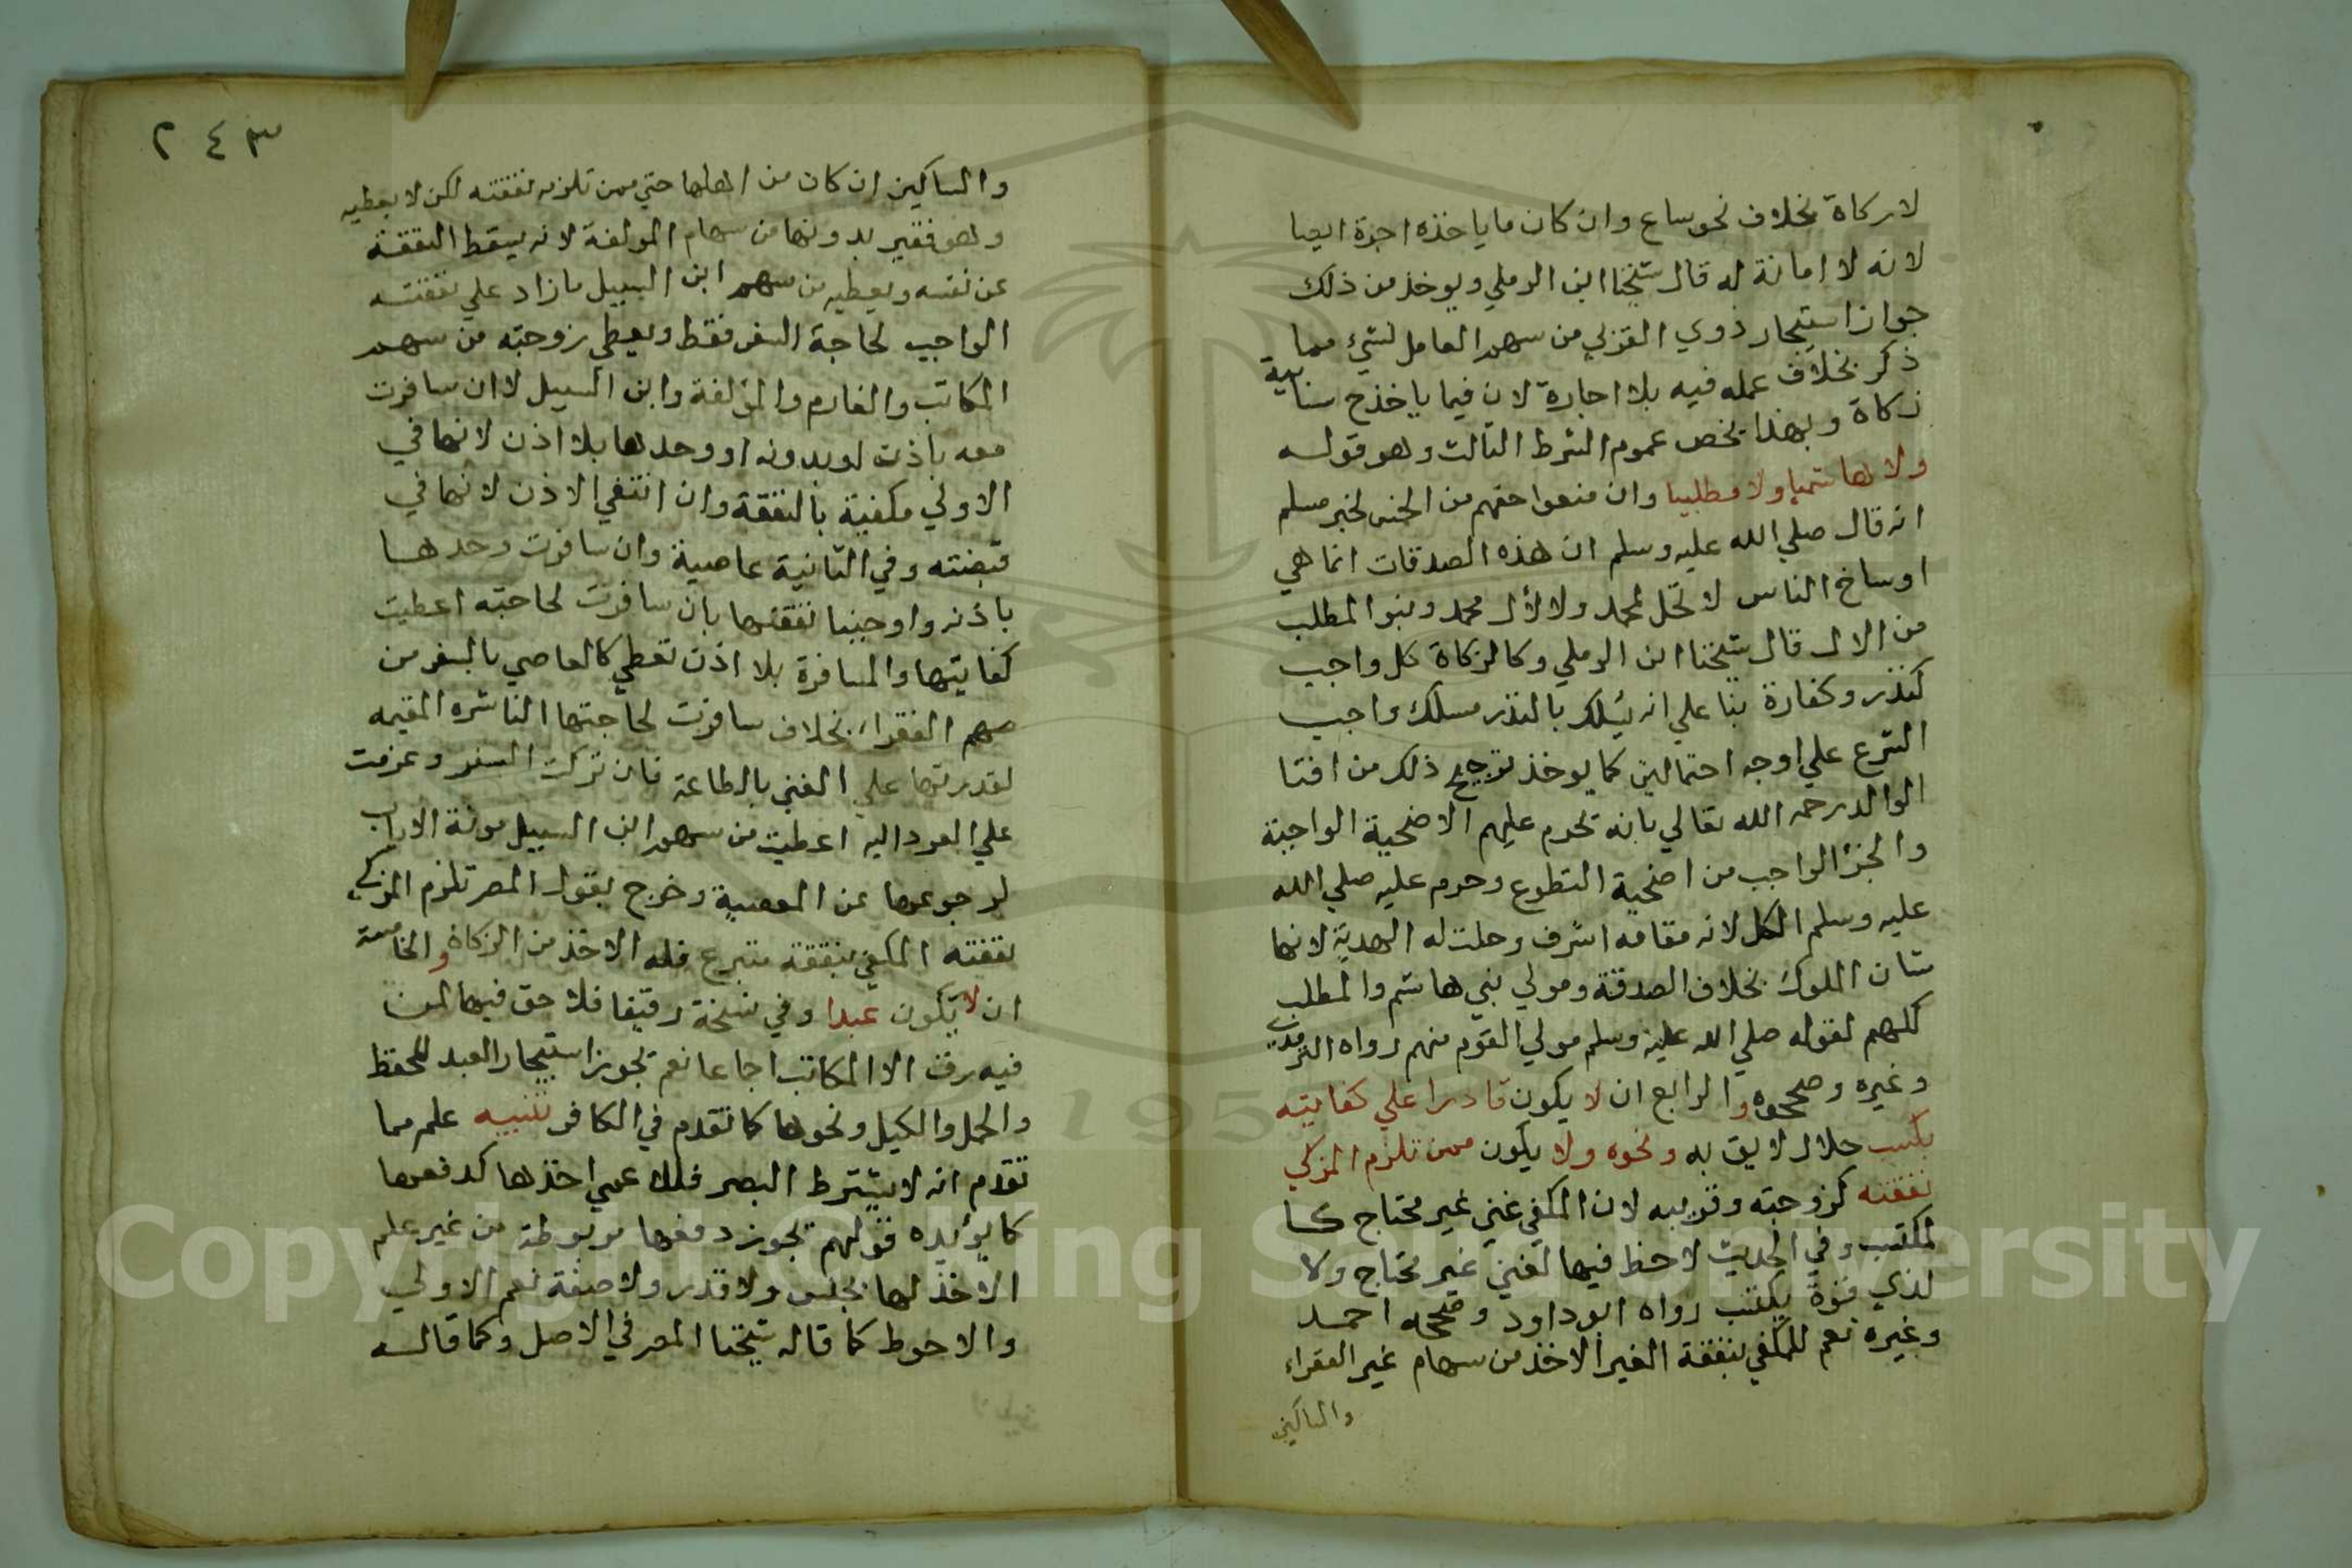 لا زكاة بخلاف نحو ساع وان كان ما ياخذه اجرة ايضا
لانه لا امانة له قال شيخنا ابن الرملي ويوخذ من ذلك
جواز استيجار ذوي القربي من سهم العامل لشيء مما
ذكر بخلاف عمله فيه بلا اجارة لان فيما ياخذح
زكاة وبهذا يخص عموم الشرط الثالث وهو قوله
ولا هاشميا ولا مطلبيا وان منعوا حقهم من الخمس لخبر مسلم
انه قال صلي الله عليه وسلم ان هذه الصدقات انما هي
اوساخ الناس لا تحل لمحمد ولا لأل محمد وبنوا المطلب
من الال قال شيخنا ابن الرملي وكالزكاة كل واجب
كنذر وكفارة بنا علي انه يسلك بالنذر مسلك واجب
الشرع علي اوجه احتمالين كما يوخذ ترجيح ذلك من افتا
الوالد رحمه الله تعالي بانه تحرم عليهم الاضحية الواجبة
والجزء الواجب من اضحية التطوع وحرم عليه صلي الله
عليه وسلم الكل لانه مقامه اشرف وحلت له الهدية لانها
شان الملوك بخلاف الصدقة ومولي بني هاشم والمطلب
كلهم لقوله صلي الله عليه وسلم مولي القوم منهم رواه الترمذي
وغيره وصححوه والرابع ان لا يكون قادرا علي كفايته
بكسب حلال لايق به ونحوه ولا يكون ممن تلزم المزكي
نفقته كزوجته وقريبه لان المكفي غني غير محتاج كا
لمكتسب وفي الحديث لا حظ فيها لغني غير محتاج ولا
لذي قوة يكتسب رواه ابو داود وصححه احمد
وغيره نعم للمكفي بنفقة الغير الاخذ من سهام غير الفقراء
والمساكين
٢٤٣
والمساكين ان كان من اهلها حتي ممن تلزمه نفقته لكن لا يعطيه
وهو فقير بدونها من سهام المولفة لانه يسقط النفقة
عن نفسه ويعطيه من سهم ابن السبيل ما زاد علي نفقته
الواجب لحاجة السفر فقط ويعطي زوجته من سهم
المكاتب والغارم والمؤلفة وابن السبيل لا ان سافرت
معه باذن او بدونه او وحدها بلا اذن لانها في
الاولي مكفية بالنفقة وان انتفي الاذن لانها في
قبضته وفي الثانية عاصية وان سافرت وحدها
باذنه واوجبنا نفقتها بان سافرت لحاجته اعطيت
كفايتها والمسافرة بلا اذن تعطي كالعاصي بالسفر من
سهم الفقراء بخلاف سافرت لحاجتها الناشزه المقيمه
لقدرتها علي الغني بالطاعة فان تركت السفر وعزمت
علي العود اليه اعطيت من سهم ابن السبيل مونة الاياب
لرجوعها عن المعصية وخرج بقول المصر تلزم المزكي
نفقته المكفي بنفقة متبرع فله الاخذ من الزكاة والخامسة
ان لا يكون عبدا وفي نسخة رقيقا فلا حق فيها لمن
فيه رق الا المكاتب اجماعا نعم تجوز استيجار العبد للحفظ
والحمل والكيل ونحوها كما تقدم في الكافر تنبيه علم مما
تقدم انه لا يشترط البصر فللاعمي اخذها كدفعها
كما يؤيده قولهم تجوز دفعها مربوطة من غير علم
الاخذ لها بجنس ولا قدر ولا صفة نعم الاولي
والاحوط كما قاله شيخنا المصر في الاصل وكما قاله